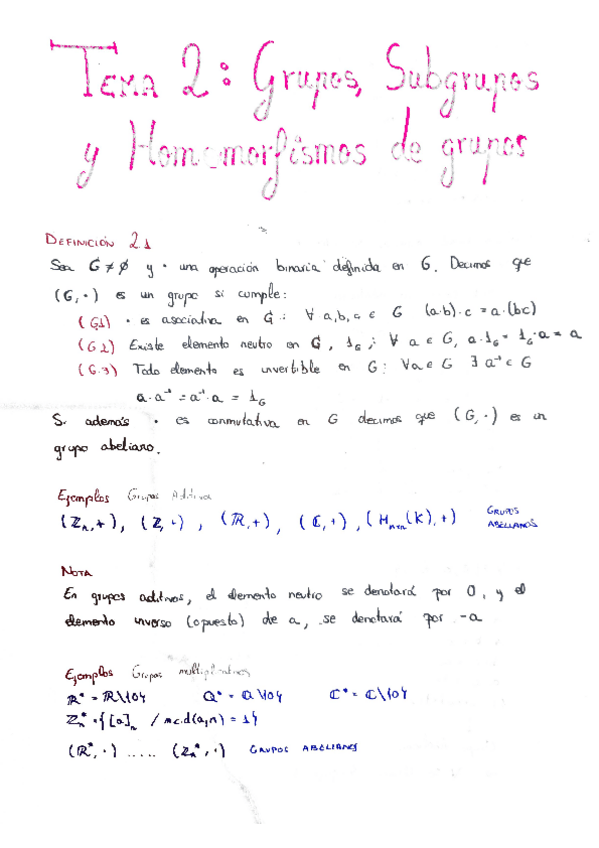 Tema 2: Grupos, Subgrupos
y Homomorfismos de grupos
DEFINICIÓN 2.1
Sea G ≠ ∅ y · una operación binaria definida en G. Decimos que
(G, ·) es un grupo si cumple:
(G1) · es asociativa en G: ∀ a,b,c ∈ G (a·b)·c = a·(bc)
(G.2) Existe elemento neutro en G, 1_G ; ∀ a ∈ G, a·1_G = 1_G·a = a
(G.3) Todo elemento es invertible en G: ∀a ∈ G ∃ a⁻¹ ∈ G
a·a⁻¹ = a⁻¹·a = 1_G
Si además · es conmutativa en G decimos que (G, ·) es un
grupo abeliano.
Ejemplos Grupos Aditivos
(ℤ_n, +), (ℤ, +), (ℝ, +), (ℂ, +), (M_{n×n}(K), +) GRUPOS
ABELIANOS
NOTA
En grupos aditivos, el elemento neutro se denotará por 0, y el
elemento inverso (opuesto) de a, se denotará por -a
Ejemplos Grupos multiplicativos
ℝ* = ℝ\{0} ℚ* = ℚ\{0} ℂ* = ℂ\{0}
ℤ_n* = {[a]_n / m.c.d(a,n) = 1}
(ℝ*, ·) ..... (ℤ_n*, ·) GRUPOS ABELIANOS